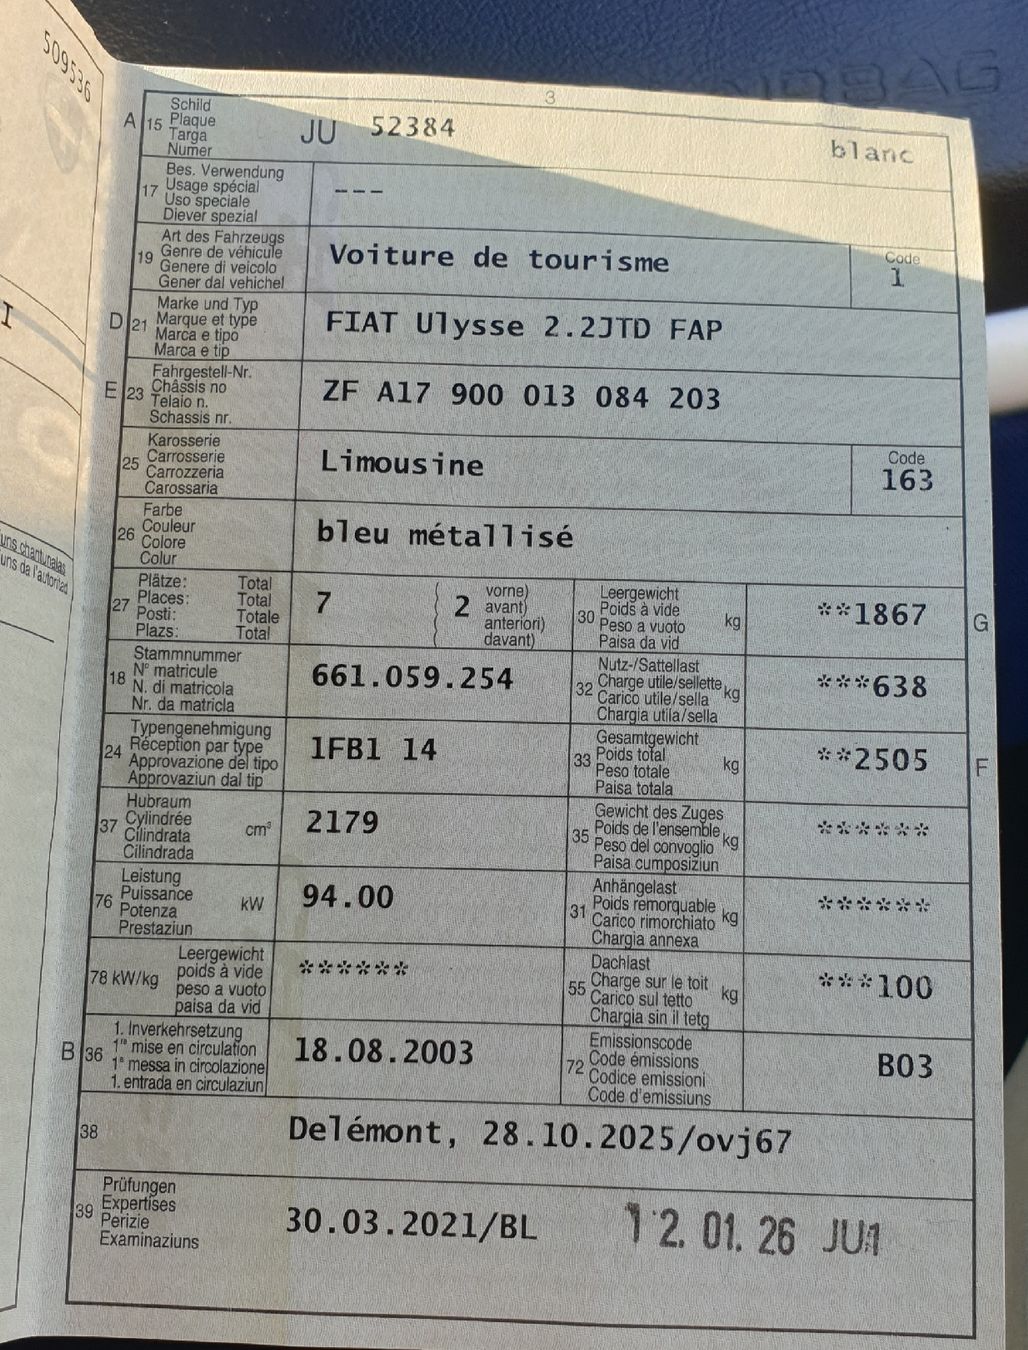 509536
3
A 15 Schild
Plaque
Targa
Numer
JU 52384
blanc
17 Bes. Verwendung
Usage spécial
Uso speciale
Diever spezial
---
19 Art des Fahrzeugs
Genre de véhicule
Genere di veicolo
Gener dal vehichel
Voiture de tourisme
Code
1
D 21 Marke und Typ
Marque et type
Marca e tipo
Marca e tip
FIAT Ulysse 2.2JTD FAP
E 23 Fahrgestell-Nr.
Châssis no
Telaio n.
Schassis nr.
ZF A17 900 013 084 203
25 Karosserie
Carrosserie
Carrozzeria
Carossaria
Limousine
Code
163
26 Farbe
Couleur
Colore
Colur
bleu métallisé
27 Plätze: Total
Places: Total
Posti: Totale
Plazs: Total
7
( 2 vorne)
( avant)
( anteriori)
( davant)
30 Leergewicht
Poids à vide
Peso a vuoto
Paisa da vid
kg
**1867
G
18 Stammnummer
N° matricule
N. di matricola
Nr. da matricla
661.059.254
32 Nutz-/Sattellast
Charge utile/sellette
Carico utile/sella
Chargia utila/sella
kg
***638
24 Typengenehmigung
Réception par type
Approvazione del tipo
Approvaziun dal tip
1FB1 14
33 Gesamtgewicht
Poids total
Peso totale
Paisa totala
kg
**2505
F
37 Hubraum
Cylindrée
Cilindrata
Cilindrada
cm³
2179
35 Gewicht des Zuges
Poids de l'ensemble
Peso del convoglio
Paisa cumposiziun
kg
******
76 Leistung
Puissance
Potenza
Prestaziun
kW
94.00
31 Anhängelast
Poids remorquable
Carico rimorchiato
Chargia annexa
kg
******
78 kW/kg
Leergewicht
poids à vide
peso a vuoto
paisa da vid
******
55 Dachlast
Charge sur le toit
Carico sul tetto
Chargia sin il tetg
kg
***100
B 36 1. Inverkehrsetzung
1re mise en circulation
1a messa in circolazione
1. entrada en circulaziun
18.08.2003
72 Emissionscode
Code émissions
Codice emissioni
Code d'emissiuns
B03
38
Delémont, 28.10.2025/ovj67
39 Prüfungen
Expertises
Perizie
Examinaziuns
30.03.2021/BL
12.01.26 JU1